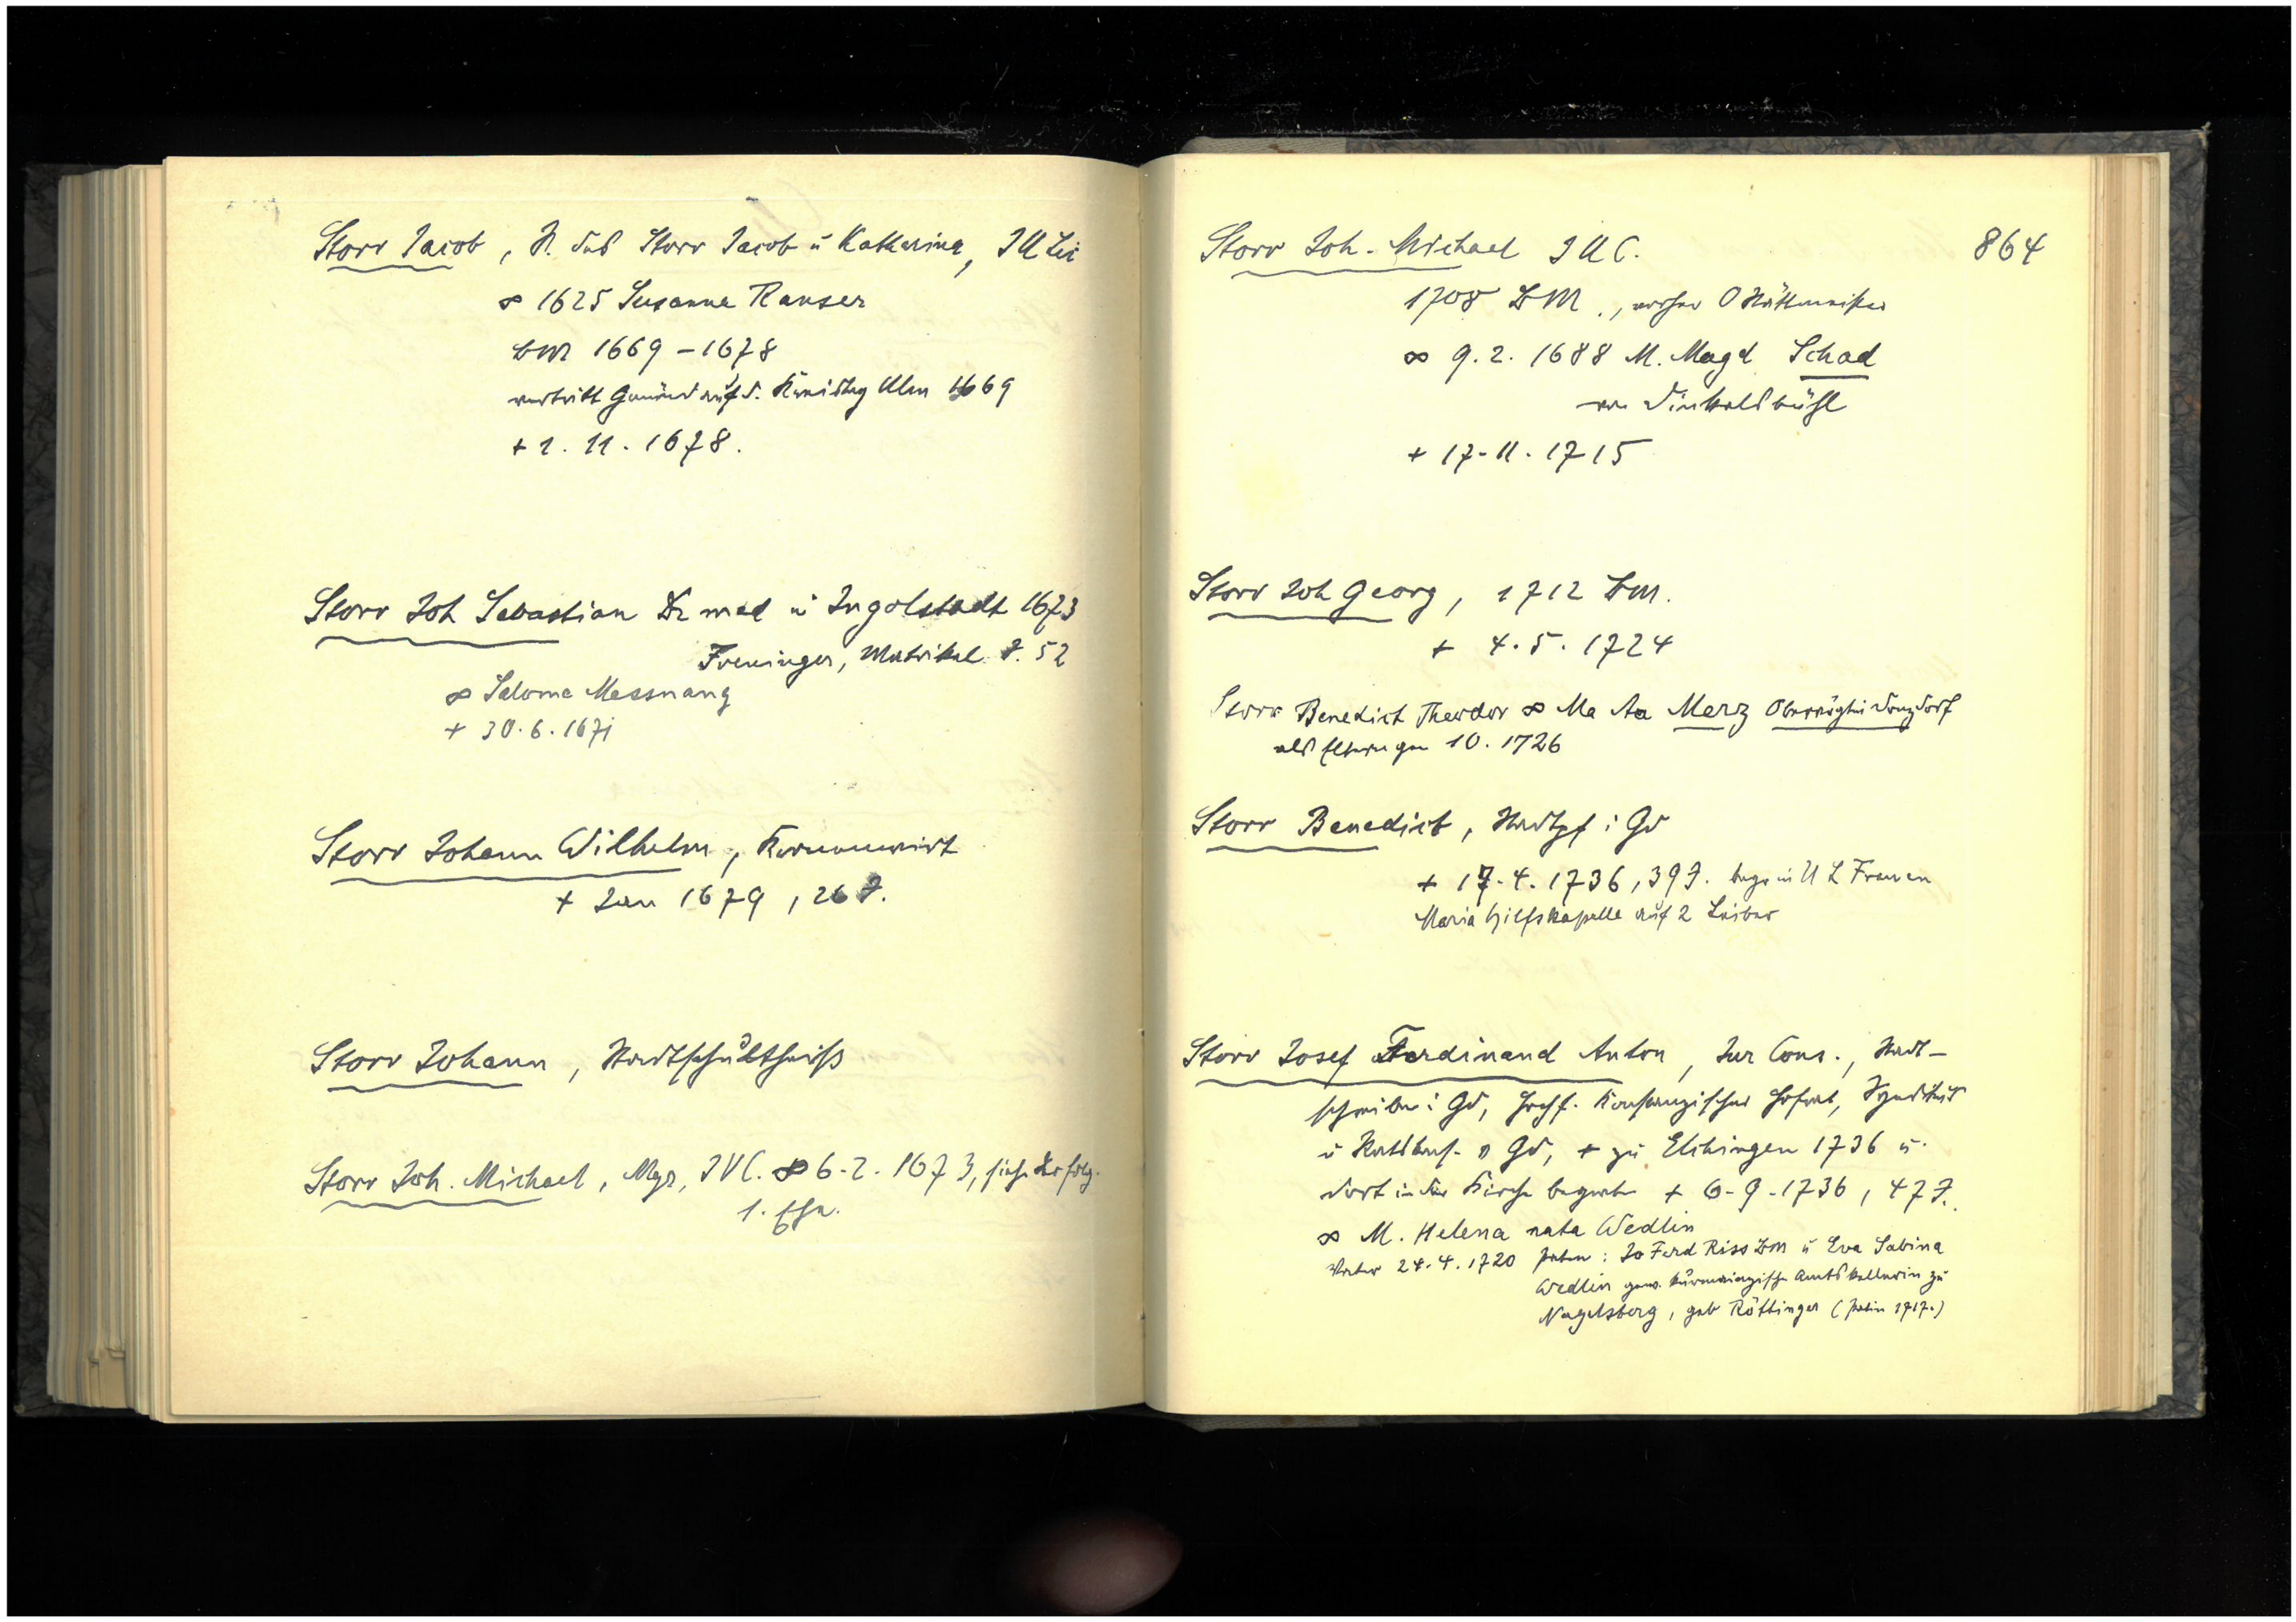 Storr Jacob, S. des Storr Jacob u Katharina, I U Lic
∞ 1625 Susanna Rauser
BM 1669 – 1678
vertritt Gmünd auf d. Kreistag Ulm 1669
+ 1. 11. 1678.
Storr Joh Sebastian Dr med in Ingolstadt 1673
Freninger, Matrikel S. 52
∞ Salome Messnang
+ 30. 6. 167
Storr Johann Wilhelm, Kronenwirt
+ Jan 1679, 26 J.
Storr Johann, Stadtschultheiß
Storr Joh. Michael, Mgr, IVC. ∞ 6. 2. 1673, siehe folg.
1. Ehe.
864
Storr Joh. Michael I U C.
1708 BM., vorher O Stättmeister
∞ 9. 2. 1688 M. Magd Schad
von Dinkelsbühl
+ 17. 11. 1715
Storr Joh Georg, 1712 BM.
+ 4. 5. 1724
Storr Benedict Theodor ∞ Ma Aa Merz Obervögtin Donzdorf
als 10. 1726
Storr Benedict, Stadtpf i Gd
+ 17. 4. 1736, 39 J. begr in U L Frauen
Maria Hilfskapelle auf 2 Leiber
Storr Josef Ferdinand Anton, Jur Cons., Stadt-
schreiber i Gd, Hochf. Konstanzischer Hofrat, Syndikus
u Ratskons. v Gd, + zu Elchingen 1736 u.
dort in der Kirche begraben + 6. 9. 1736, 47 J.
∞ M. Helena nata Wedlin
Vater 24. 4. 1720 Paten: Jo Ferd Riss BM u Eva Sabina
Wedlin gew. kurmainzische Amtskellerin zu
Nagelsberg, geb Röttinger (Patin 1717.)